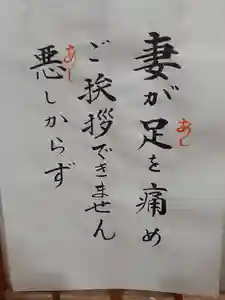 妻が足を痛め
あし
ご挨拶できません
悪しからず
あし